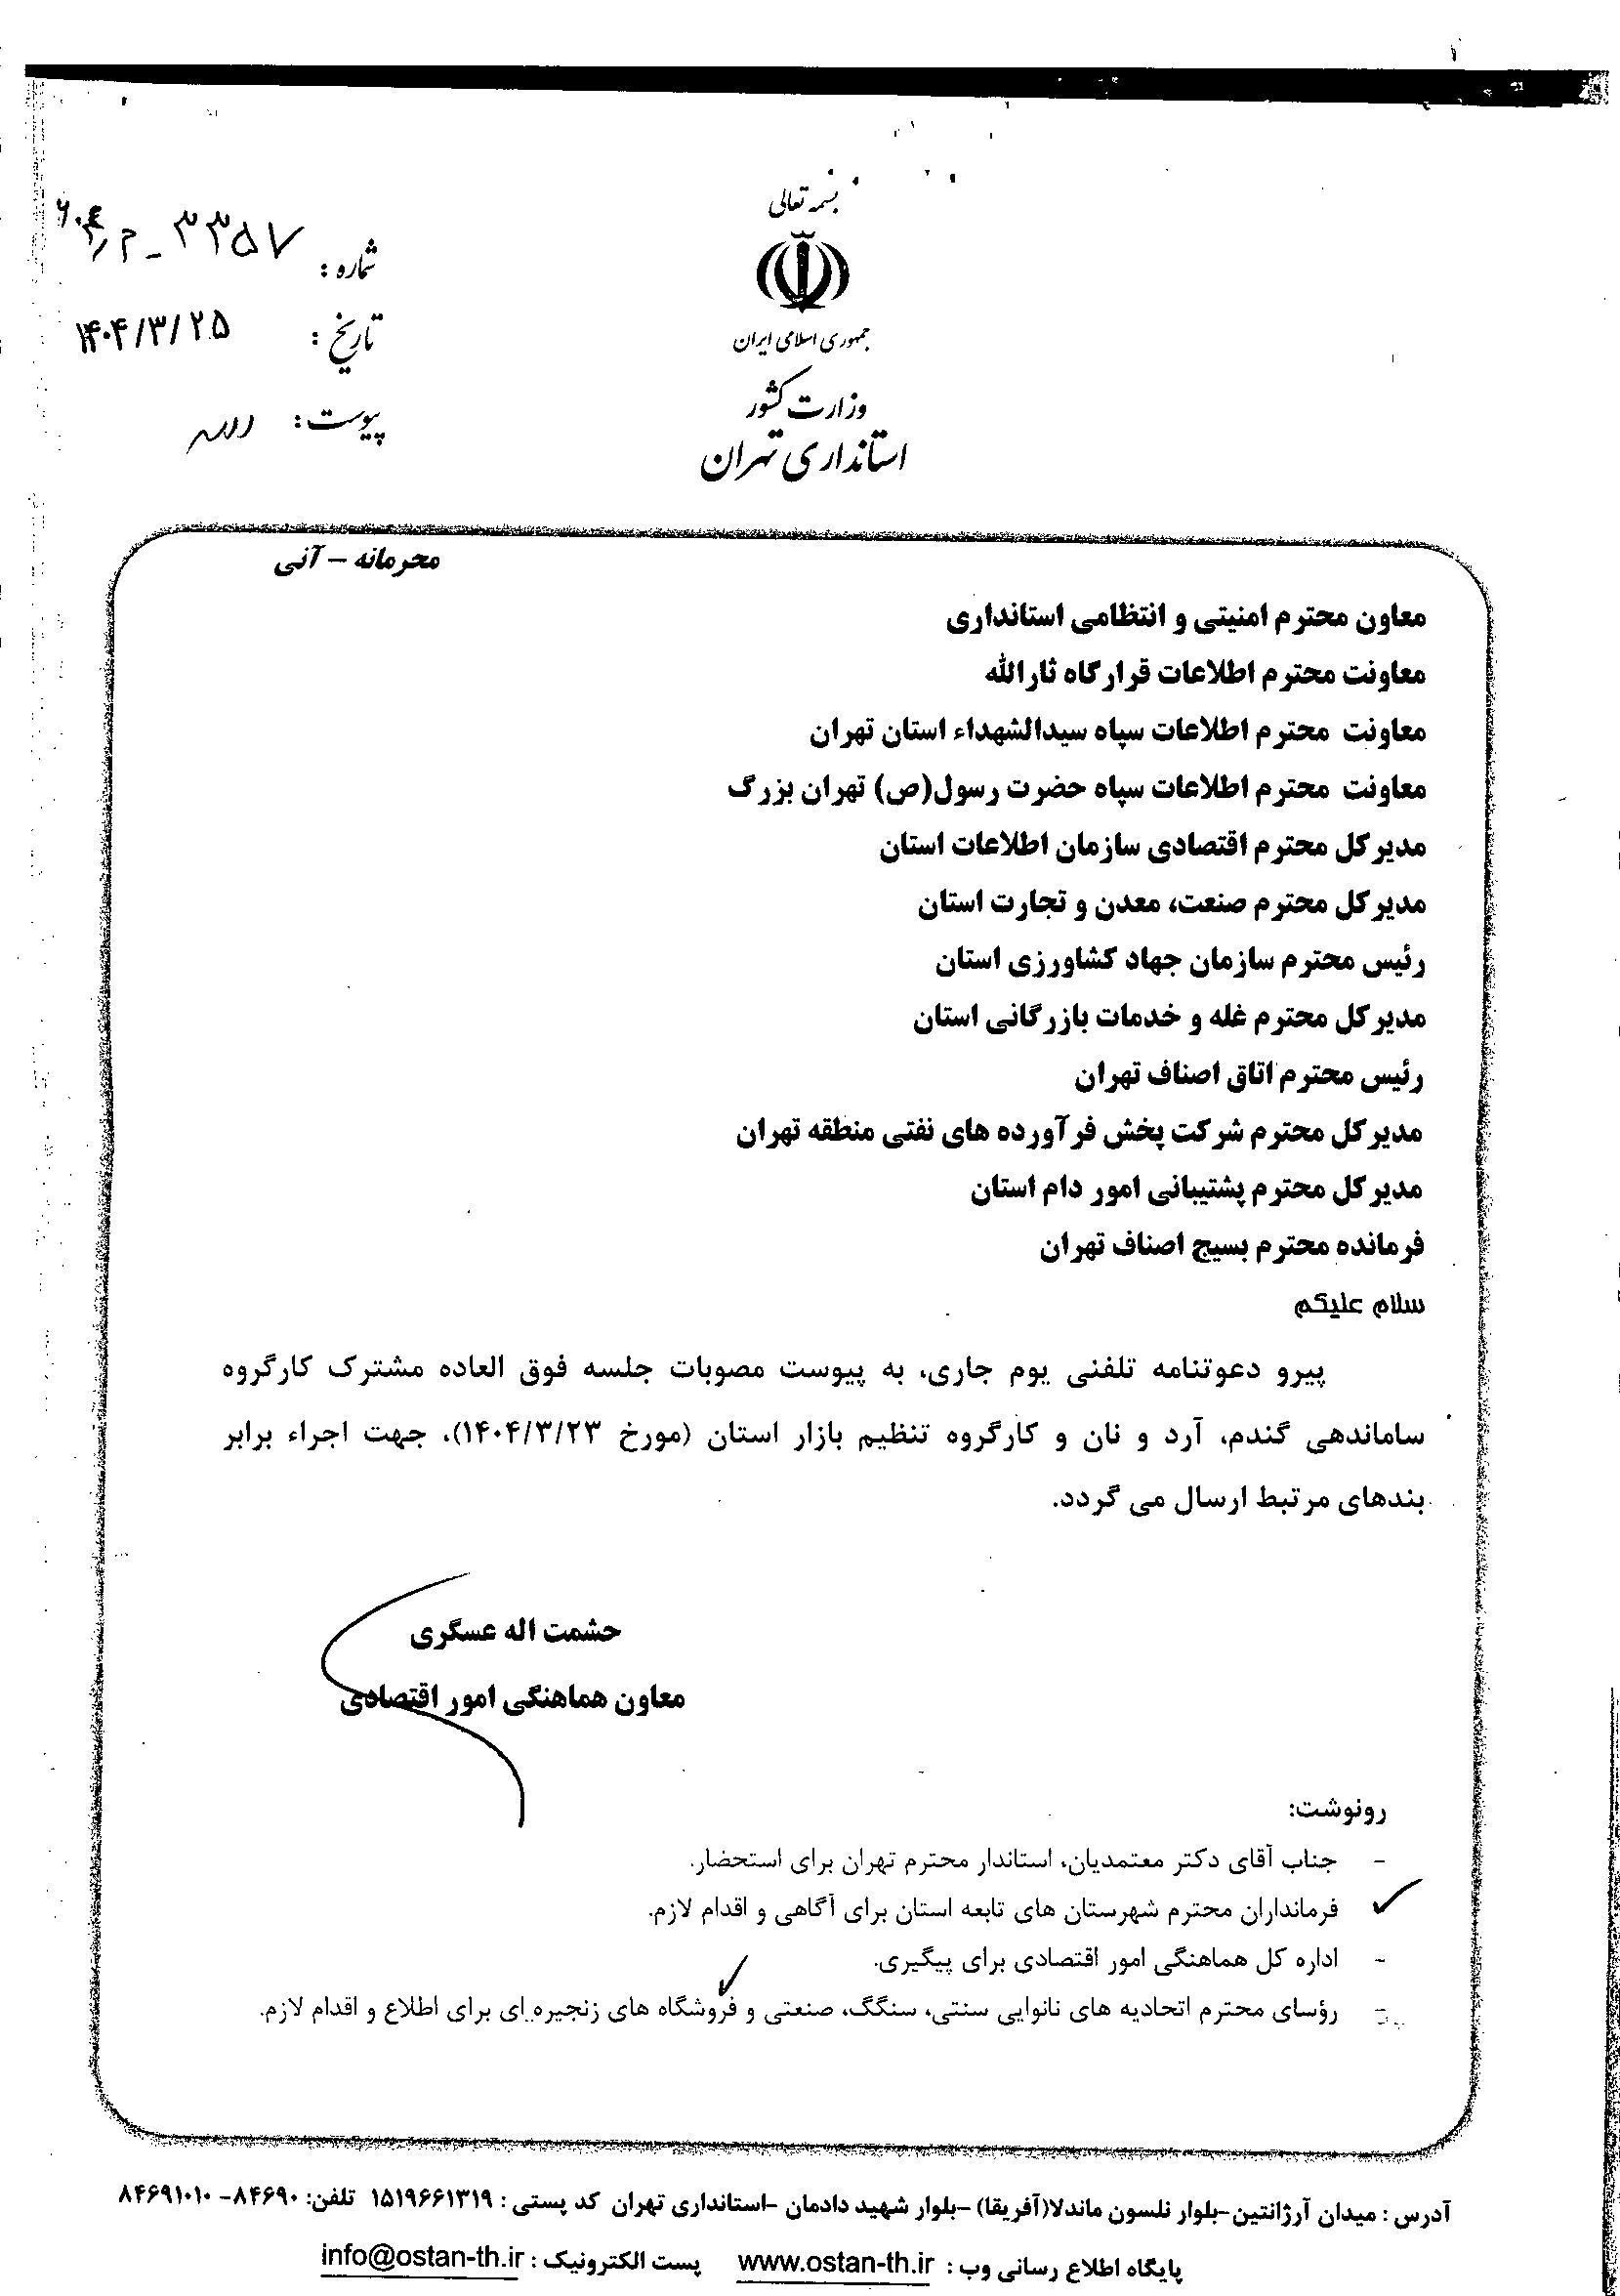 بسمه تعالی
جمهوری اسلامی ایران
وزارت کشور
استانداری تهران
شماره : ۳۳۵۷
تاریخ : ۱۴۰۴/۳/۲۵
پیوست : دارد
محرمانه – آنی
معاون محترم امنیتی و انتظامی استانداری
معاونت محترم اطلاعات قرارگاه ثارالله
معاونت محترم اطلاعات سپاه سیدالشهداء استان تهران
معاونت محترم اطلاعات سپاه حضرت رسول(ص) تهران بزرگ
مدیرکل محترم اقتصادی سازمان اطلاعات استان
مدیرکل محترم صنعت، معدن و تجارت استان
رئیس محترم سازمان جهاد کشاورزی استان
مدیرکل محترم غله و خدمات بازرگانی استان
رئیس محترم اتاق اصناف تهران
مدیرکل محترم شرکت پخش فرآورده های نفتی منطقه تهران
مدیرکل محترم پشتیبانی امور دام استان
فرمانده محترم بسیج اصناف تهران
سلام علیکم
پیرو دعوتنامه تلفنی یوم جاری، به پیوست مصوبات جلسه فوق العاده مشترک کارگروه
ساماندهی گندم، آرد و نان و کارگروه تنظیم بازار استان (مورخ ۱۴۰۴/۳/۲۳)، جهت اجراء برابر
بندهای مرتبط ارسال می گردد.
حشمت اله عسگری
معاون هماهنگی امور اقتصادی
رونوشت:
- جناب آقای دکتر معتمدیان، استاندار محترم تهران برای استحضار.
فرمانداران محترم شهرستان های تابعه استان برای آگاهی و اقدام لازم.
- اداره کل هماهنگی امور اقتصادی برای پیگیری.
- رؤسای محترم اتحادیه های نانوایی سنتی، سنگک، صنعتی و فروشگاه های زنجیره ای برای اطلاع و اقدام لازم.
آدرس : میدان آرژانتین-بلوار نلسون ماندلا(آفریقا) -بلوار شهید دادمان -استانداری تهران کد پستی : ۱۵۱۹۶۶۱۳۱۹ تلفن: ۸۴۶۹۰- ۸۴۶۹۱۰۱۰
پایگاه اطلاع رسانی وب : www.ostan-th.ir پست الکترونیک : info@ostan-th.ir